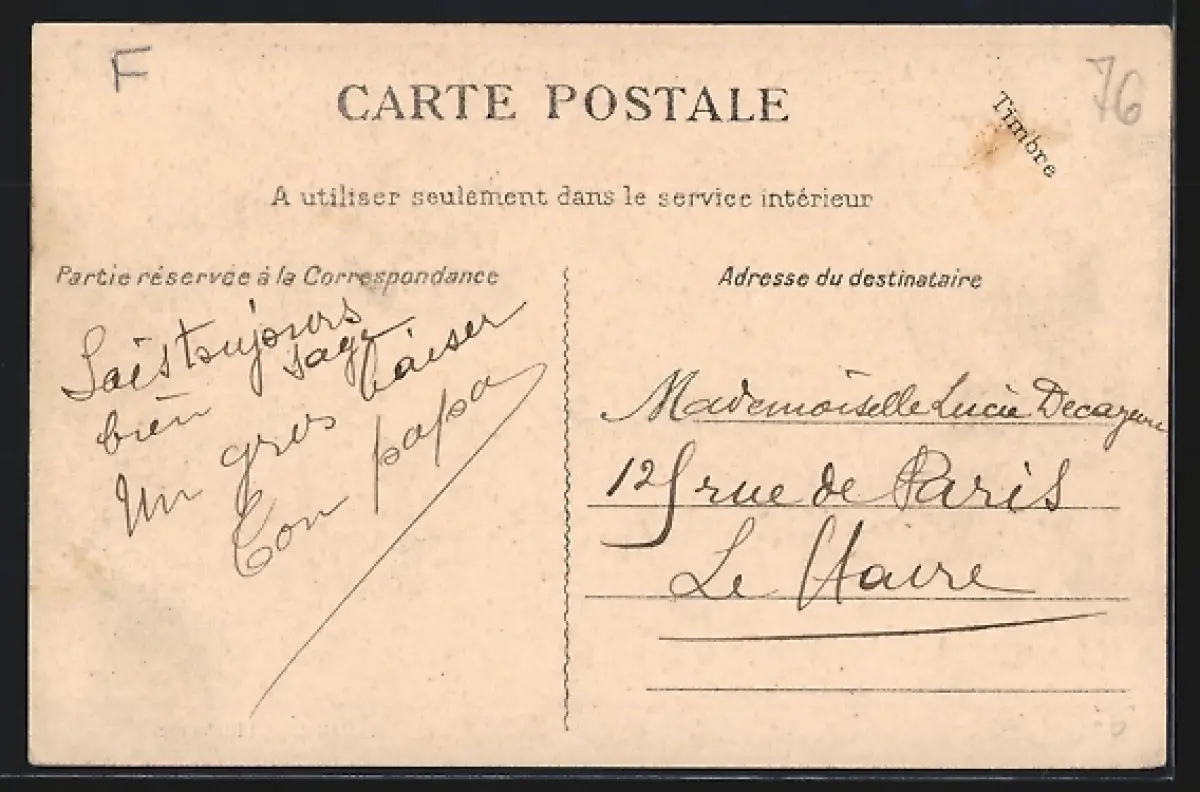 F
76
CARTE POSTALE
Timbre
A utiliser seulement dans le service intérieur
Partie réservée à la Correspondance
Sois toujours
bien sage
Un gros baiser
Ton papa
Adresse du destinataire
Mademoiselle Lucie
125 rue de Paris
Le Havre